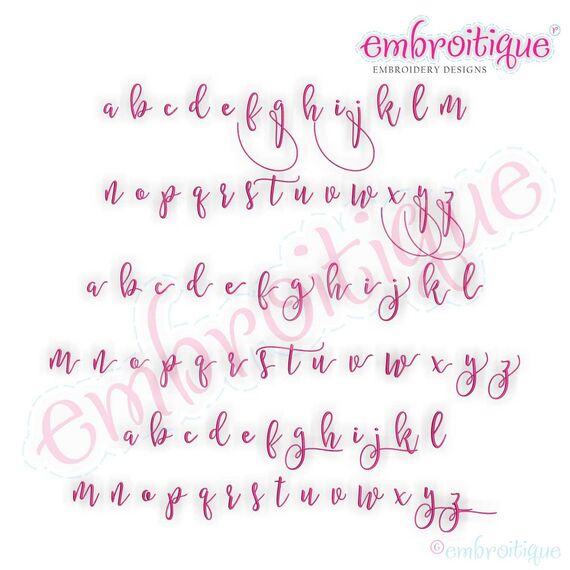 embroitique
EMBROIDERY DESIGNS
a b c d e f g h i j k l m
n o p q r s t u v w x y z
a b c d e f g h i j k l
m n o p q r s t u v w x y z
a b c d e f g h i j k l
m n o p q r s t u v w x y z
embroitique
© embroitique